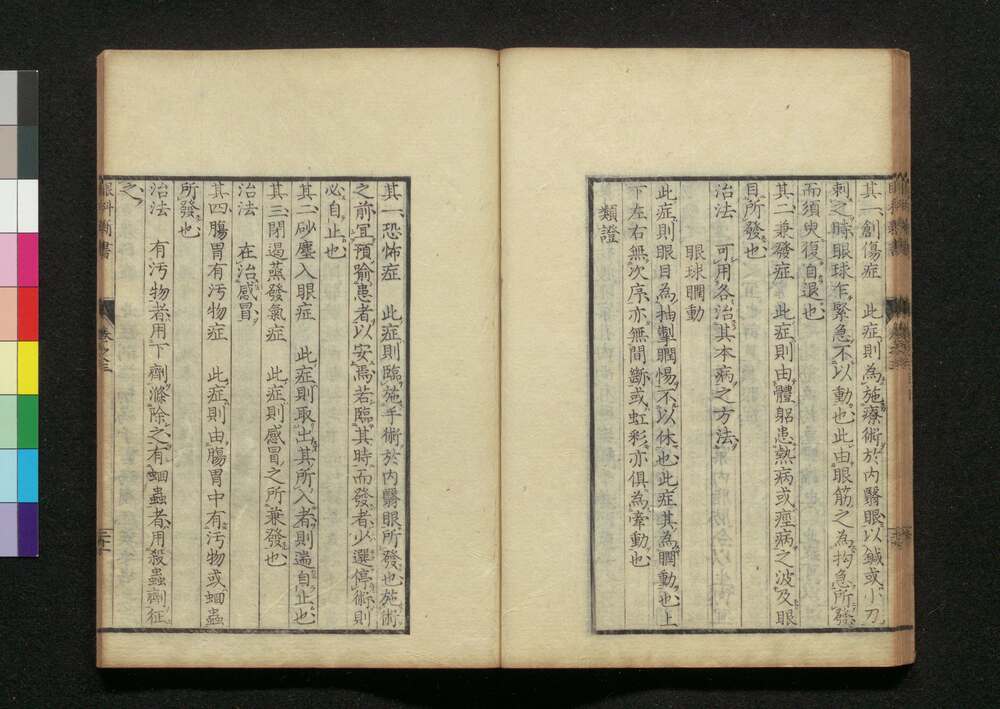 其一、創傷症　此症則為施療術於內瞖眼以鍼或小刀
刺之時眼球乍緊急不以動也此由眼筋之為拘急所發
而須臾復自退也
其二兼發症　此症則由體軀患熱病或痙病之波及眼
目所發也
治法　可用各治其本病之方法
眼球瞤動
此症則眼目為抽掣瞤惕不以休也此症其為瞤動也上
下左右無次序亦無間斷或虹彩亦俱為牽動也
類證
其一、恐怖症　此症則臨施手術於內瞖眼所發也施術
之前宜預喻患者以安焉若臨其時而發者少選停術則
必自止也
其二砂塵入眼症　此症則取出其所入者則遄自止也
其三閉遏蒸發氣症　此症則感冒之所兼發也
治法　在治感冒
其四腸胃有汚物症　此症則由腸胃中有汚物或蛔蟲
所發也
治法　有汚物者用下劑滌除之有蛔蟲者用殺蟲劑征
之
眼科
書
卷之三